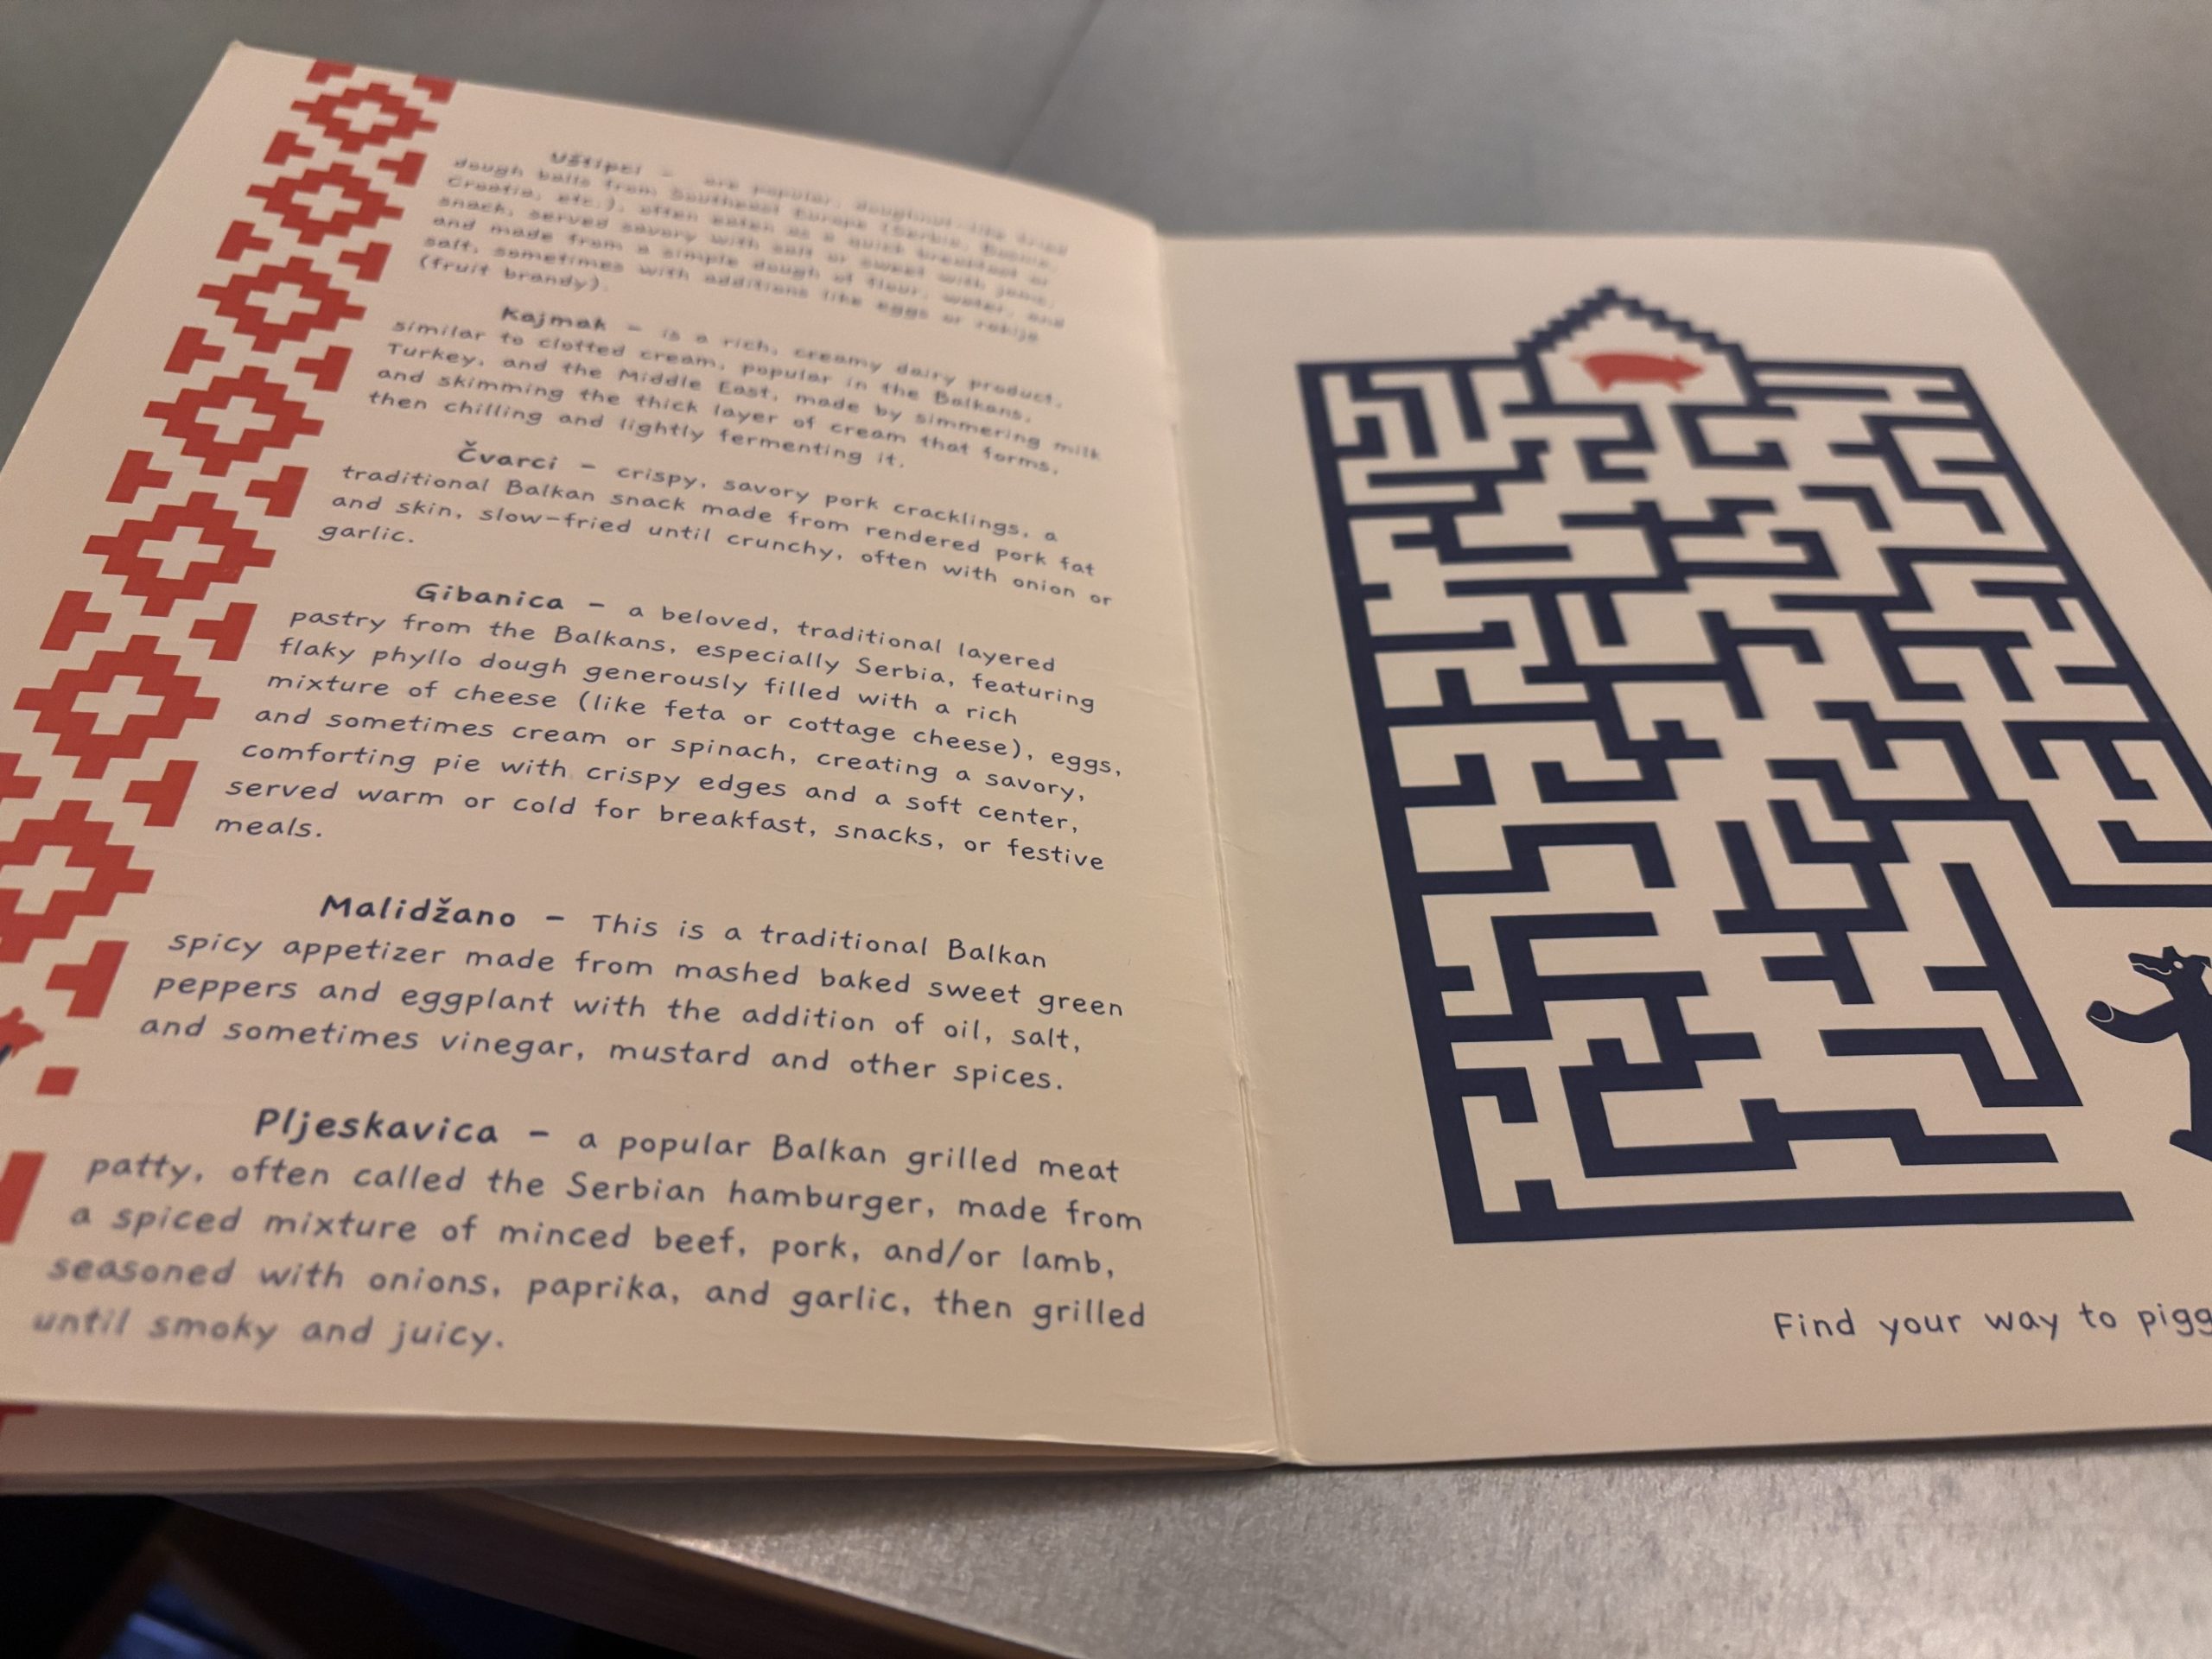 Uštipci - are popular, doughnut-like fried
dough balls from Southeast Europe (Serbia, Bosnia,
Croatia, etc.), often eaten as a quick breakfast or
snack, served savory with salt or sweet with jams,
and made from a simple dough of flour, water, and
salt, sometimes with additions like eggs or rakija
(fruit brandy).
Kajmak - is a rich, creamy dairy product,
similar to clotted cream, popular in the Balkans,
Turkey, and the Middle East, made by simmering milk
and skimming the thick layer of cream that forms,
then chilling and lightly fermenting it.
Čvarci - crispy, savory pork cracklings, a
traditional Balkan snack made from rendered pork fat
and skin, slow-fried until crunchy, often with onion or
garlic.
Gibanica - a beloved, traditional layered
pastry from the Balkans, especially Serbia, featuring
flaky phyllo dough generously filled with a rich
mixture of cheese (like feta or cottage cheese), eggs,
and sometimes cream or spinach, creating a savory,
comforting pie with crispy edges and a soft center,
served warm or cold for breakfast, snacks, or festive
meals.
Malidžano - This is a traditional Balkan
spicy appetizer made from mashed baked sweet green
peppers and eggplant with the addition of oil, salt,
and sometimes vinegar, mustard and other spices.
Pljeskavica - a popular Balkan grilled meat
patty, often called the Serbian hamburger, made from
a spiced mixture of minced beef, pork, and/or lamb,
seasoned with onions, paprika, and garlic, then grilled
until smoky and juicy.
Find your way to pigg